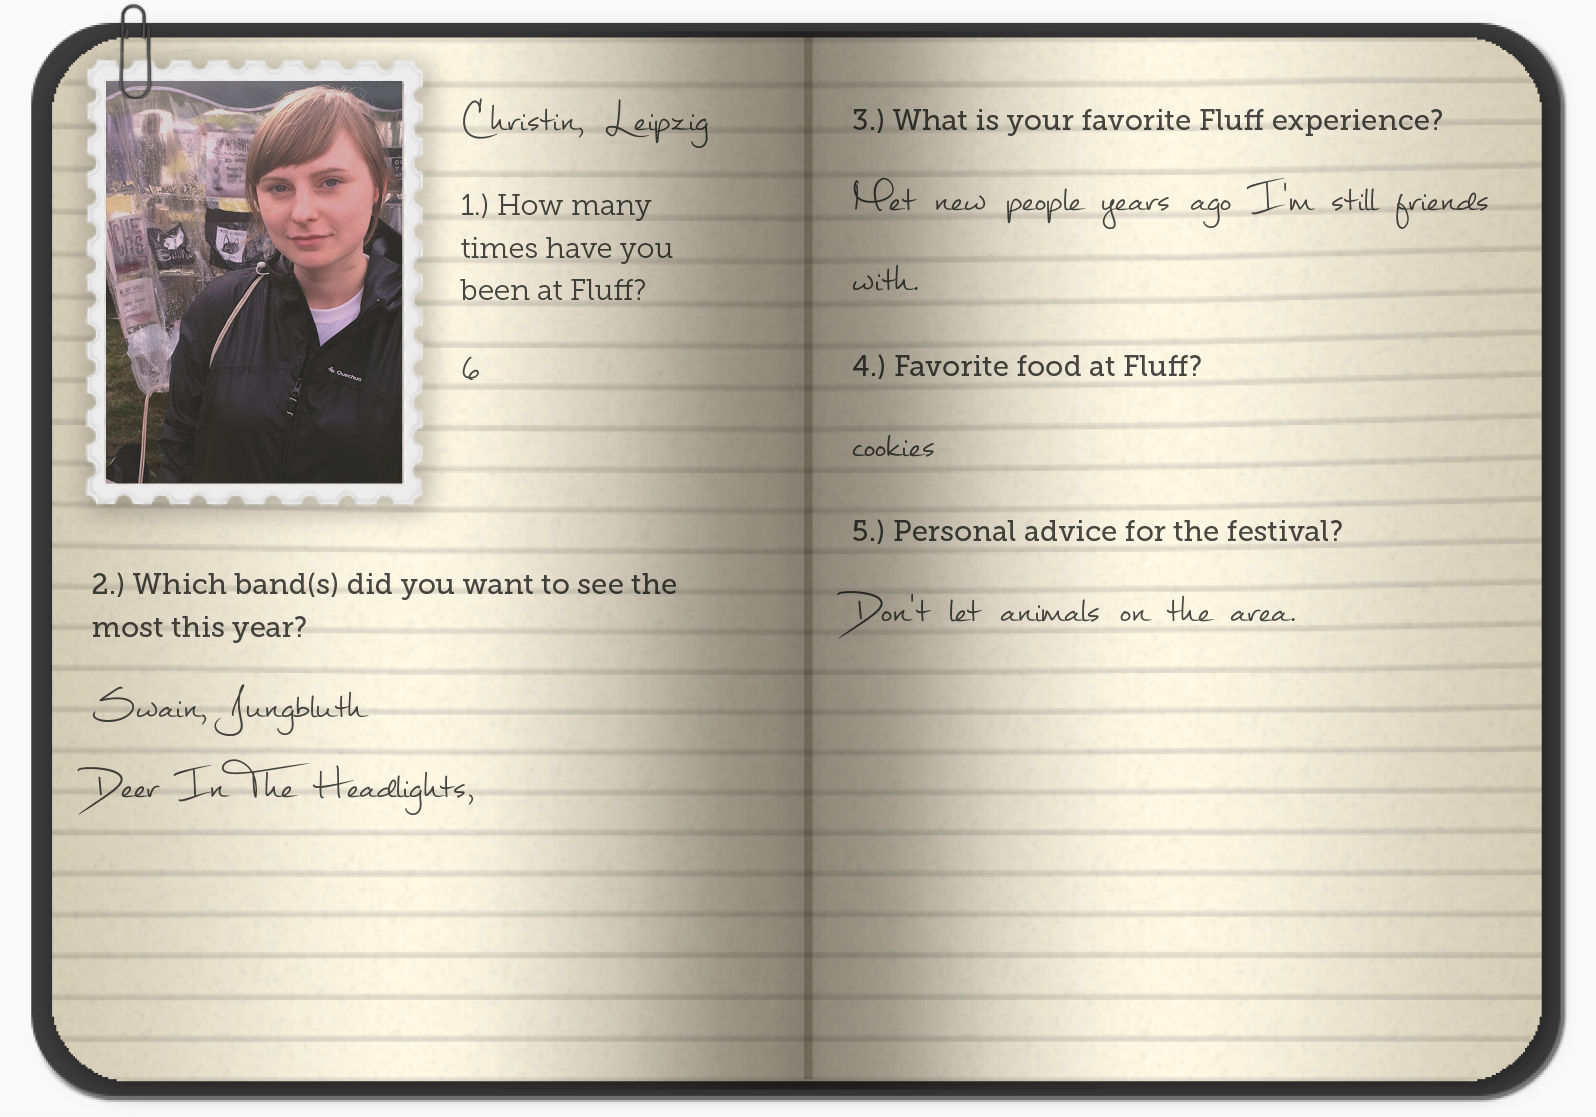 Christin, Leipzig
1.) How many
times have you
been at Fluff?
6
Quechua
2.) Which band(s) did you want to see the
most this year?
Swain, Jungbluth
Deer In The Headlights,
3.) What is your favorite Fluff experience?
Met new people years ago I'm still friends
with.
4.) Favorite food at Fluff?
cookies
5.) Personal advice for the festival?
Don't let animals on the area.